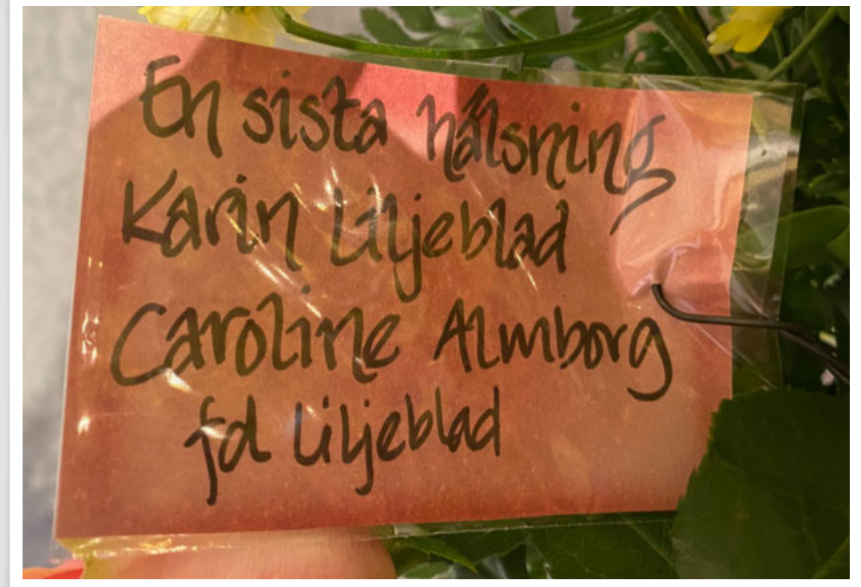 En sista hälsning
Karin Liljeblad
Caroline Almborg
fd Liljeblad